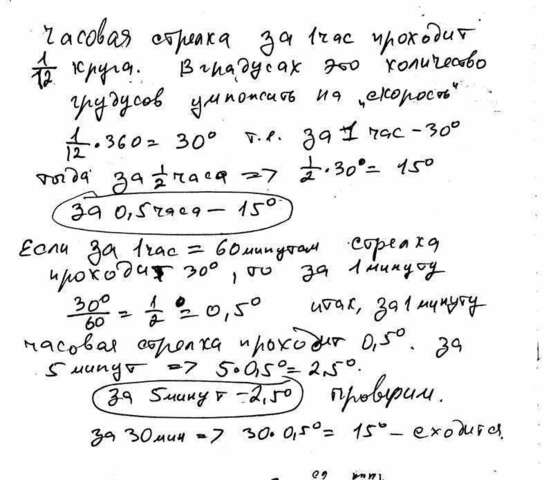 Часовая стрелка за 1час проходит
1/12 круга. В градусах это количество
грудусов умножить на "скорость"
1/12 · 360 = 30° т.е. за 1 час – 30°
тогда за 1/2 часа => 1/2 · 30° = 15°
за 0,5 часа – 15°
Если за 1час = 60 минутам стрелка
проходит 30°, то за 1 минуту
30°/60 = 1/2° = 0,5° итак, за 1 минуту
часовая стрелка проходит 0,5°. за
5 минут => 5·0,5° = 2,5°.
за 5минут – 2,5° проверим.
за 30мин => 30·0,5° = 15° – сходится.